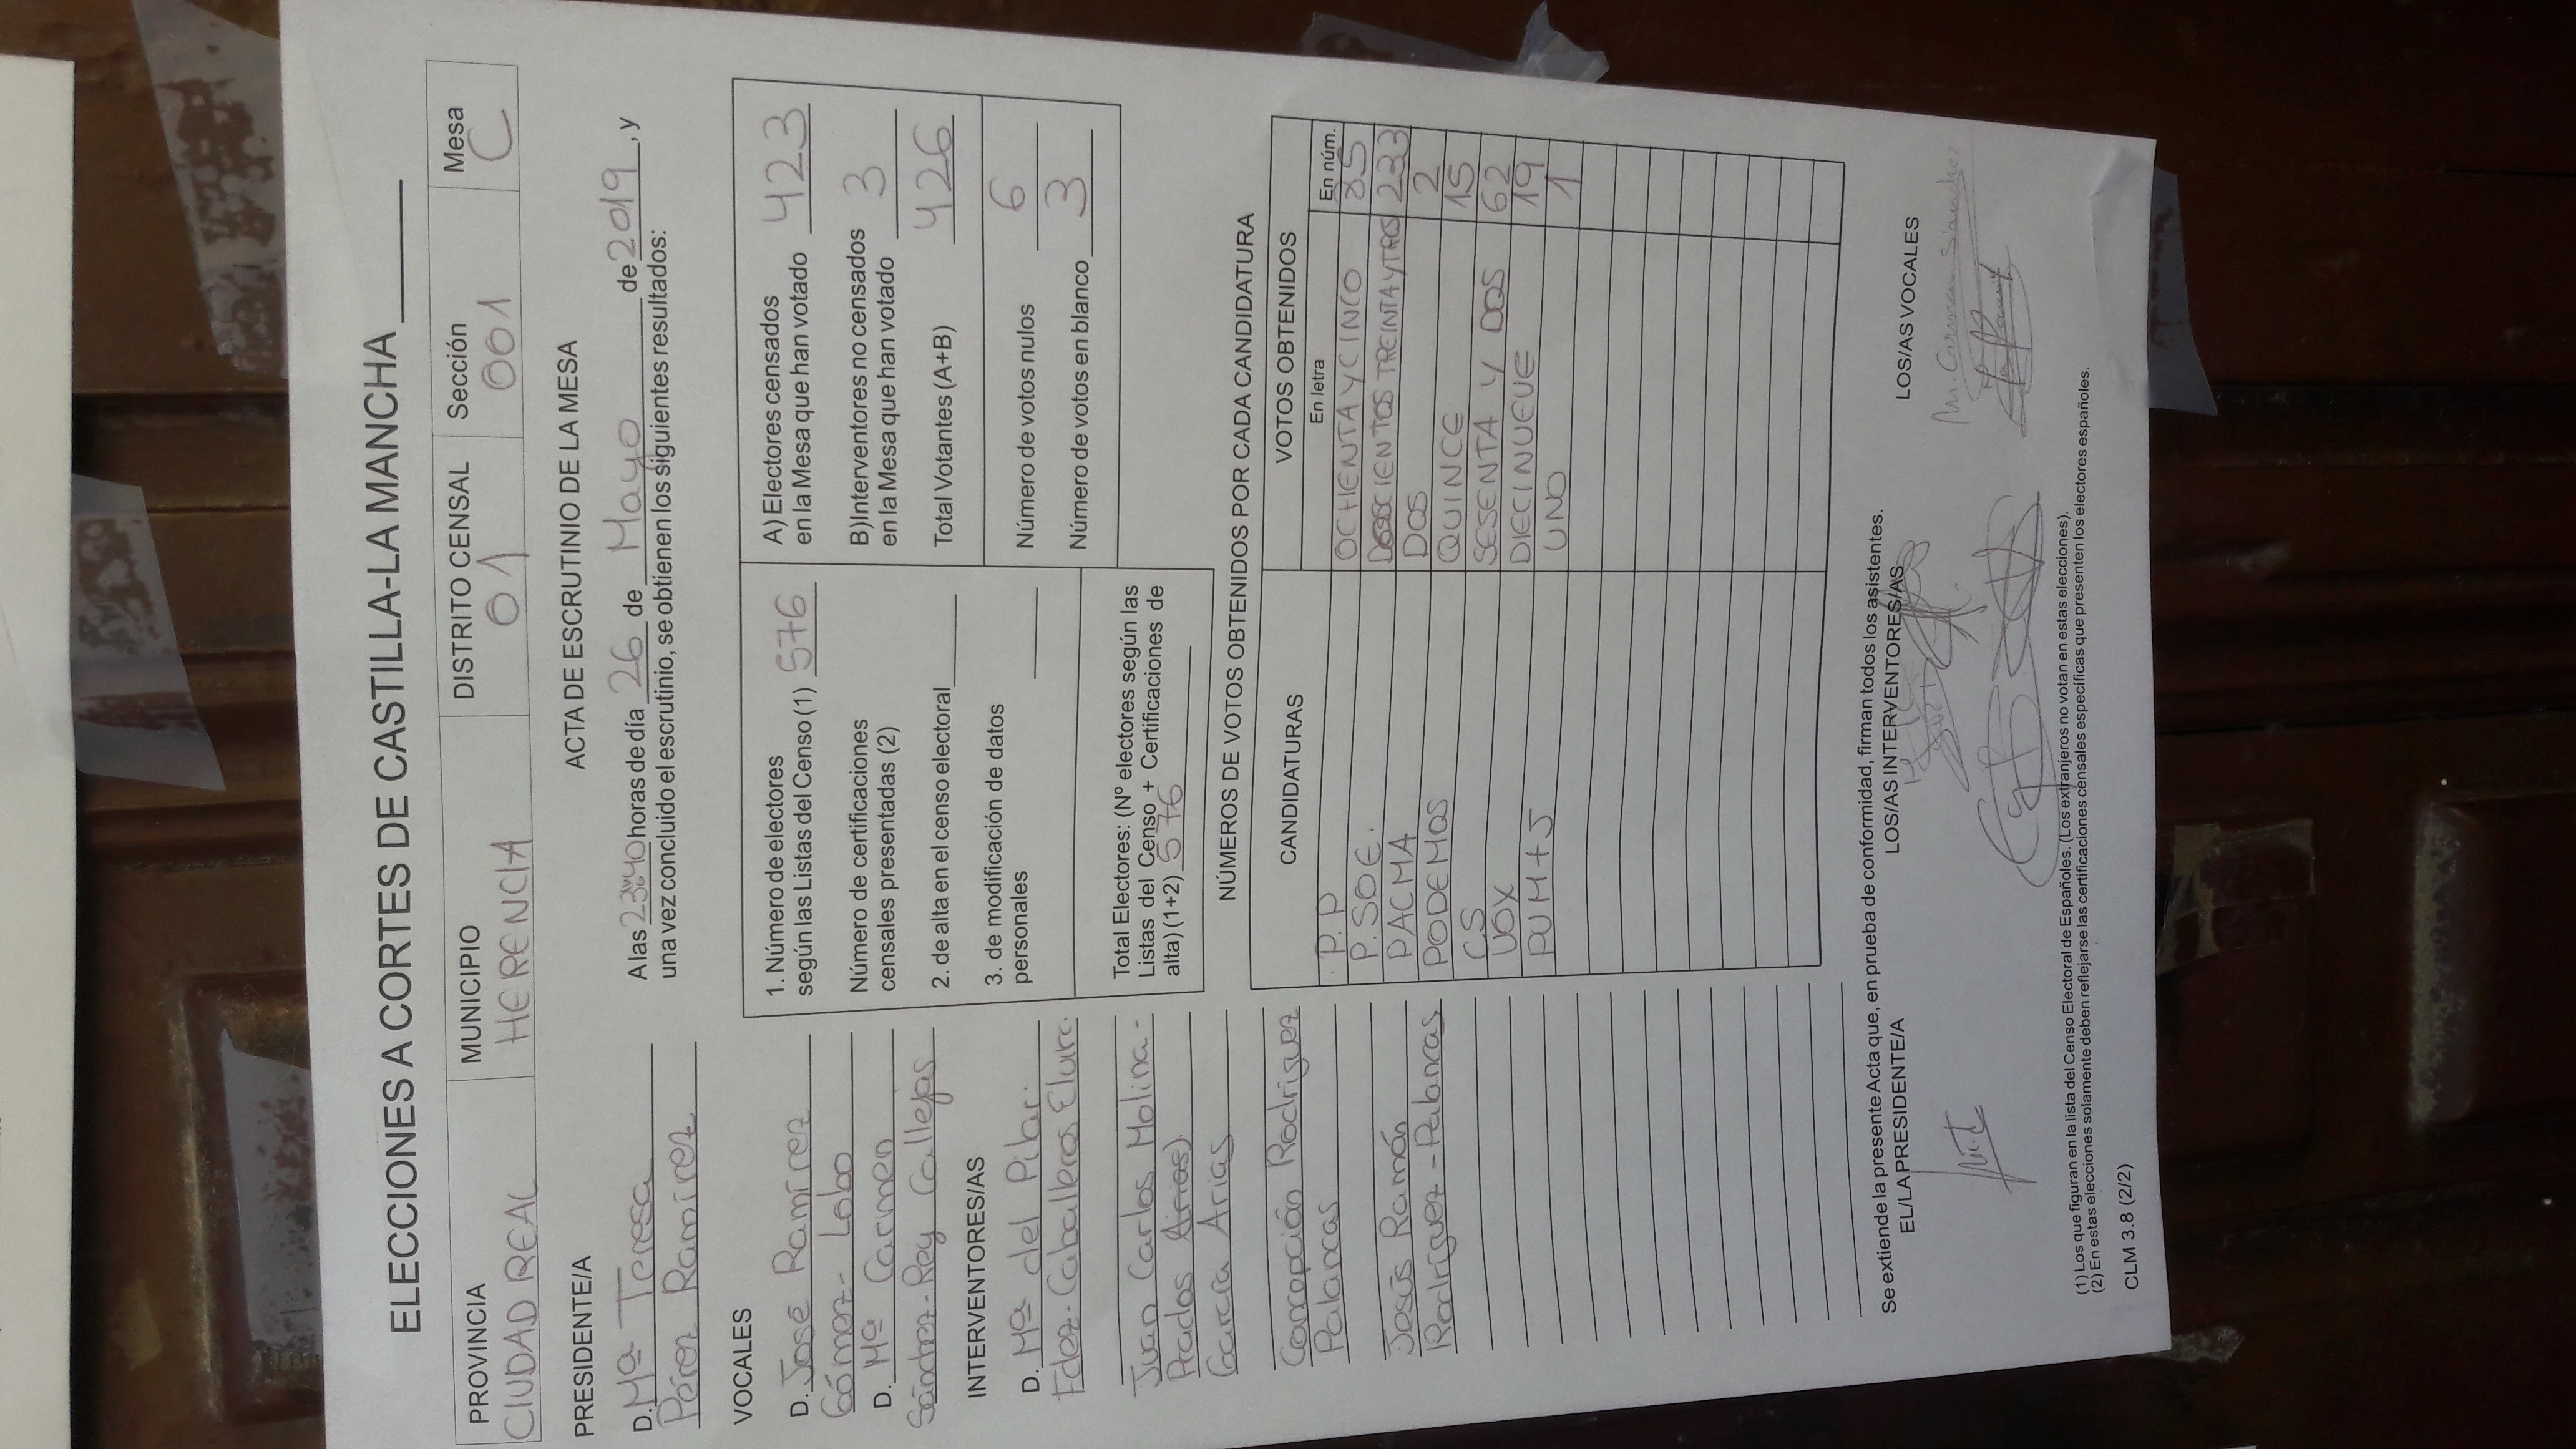 ELECCIONES A CORTES DE CASTILLA-LA MANCHA
PROVINCIA
CIUDAD REAL
MUNICIPIO
HERENCIA
DISTRITO CENSAL
01
Sección
001
Mesa
C
ACTA DE ESCRUTINIO DE LA MESA
PRESIDENTE/A
D. Mª Teresa
Pérez Ramírez
VOCALES
D. José Ramírez
Gómez-Lobo
D. Mª Carmen
Sánchez-Rey Callejas
INTERVENTORES/AS
D. Mª del Pilar
Fdez-Caballeros
Juan Carlos Molina-
Prados
García Arias
Concepción Rodríguez
Palancas
Jesús Ramón
Rodríguez-Palancas
A las horas de día 26 de Mayo de 2019, y
una vez concluido el escrutinio, se obtienen los siguientes resultados:
1. Número de electores
según las Listas del Censo (1) 576
Número de certificaciones
censales presentadas (2)
2. de alta en el censo electoral
3. de modificación de datos
personales
Total Electores: (Nº electores según las
Listas del Censo + Certificaciones de
alta) (1+2) 576
A) Electores censados
en la Mesa que han votado 423
B) Interventores no censados
en la Mesa que han votado 3
Total Votantes (A+B) 426
Número de votos nulos 6
Número de votos en blanco 3
NÚMEROS DE VOTOS OBTENIDOS POR CADA CANDIDATURA
CANDIDATURAS VOTOS OBTENIDOS
En letra En núm.
P.P OCHENTA Y CINCO 85
P.SOE. DOSCIENTOS TREINTA Y TRES 233
PACMA DOS 2
PODEMOS QUINCE 15
CS SESENTA Y DOS 62
VOX DIECINUEVE 19
PUM+J UNO 1
Se extiende la presente Acta que, en prueba de conformidad, firman todos los asistentes.
EL/LA PRESIDENTE/A LOS/AS INTERVENTORES/AS LOS/AS VOCALES
M. Carmen Sánchez
(1) Los que figuran en la lista del Censo Electoral de Españoles. (Los extranjeros no votan en estas elecciones).
(2) En estas elecciones solamente deben reflejarse las certificaciones censales específicas que presenten los electores españoles.
CLM 3.8 (2/2)